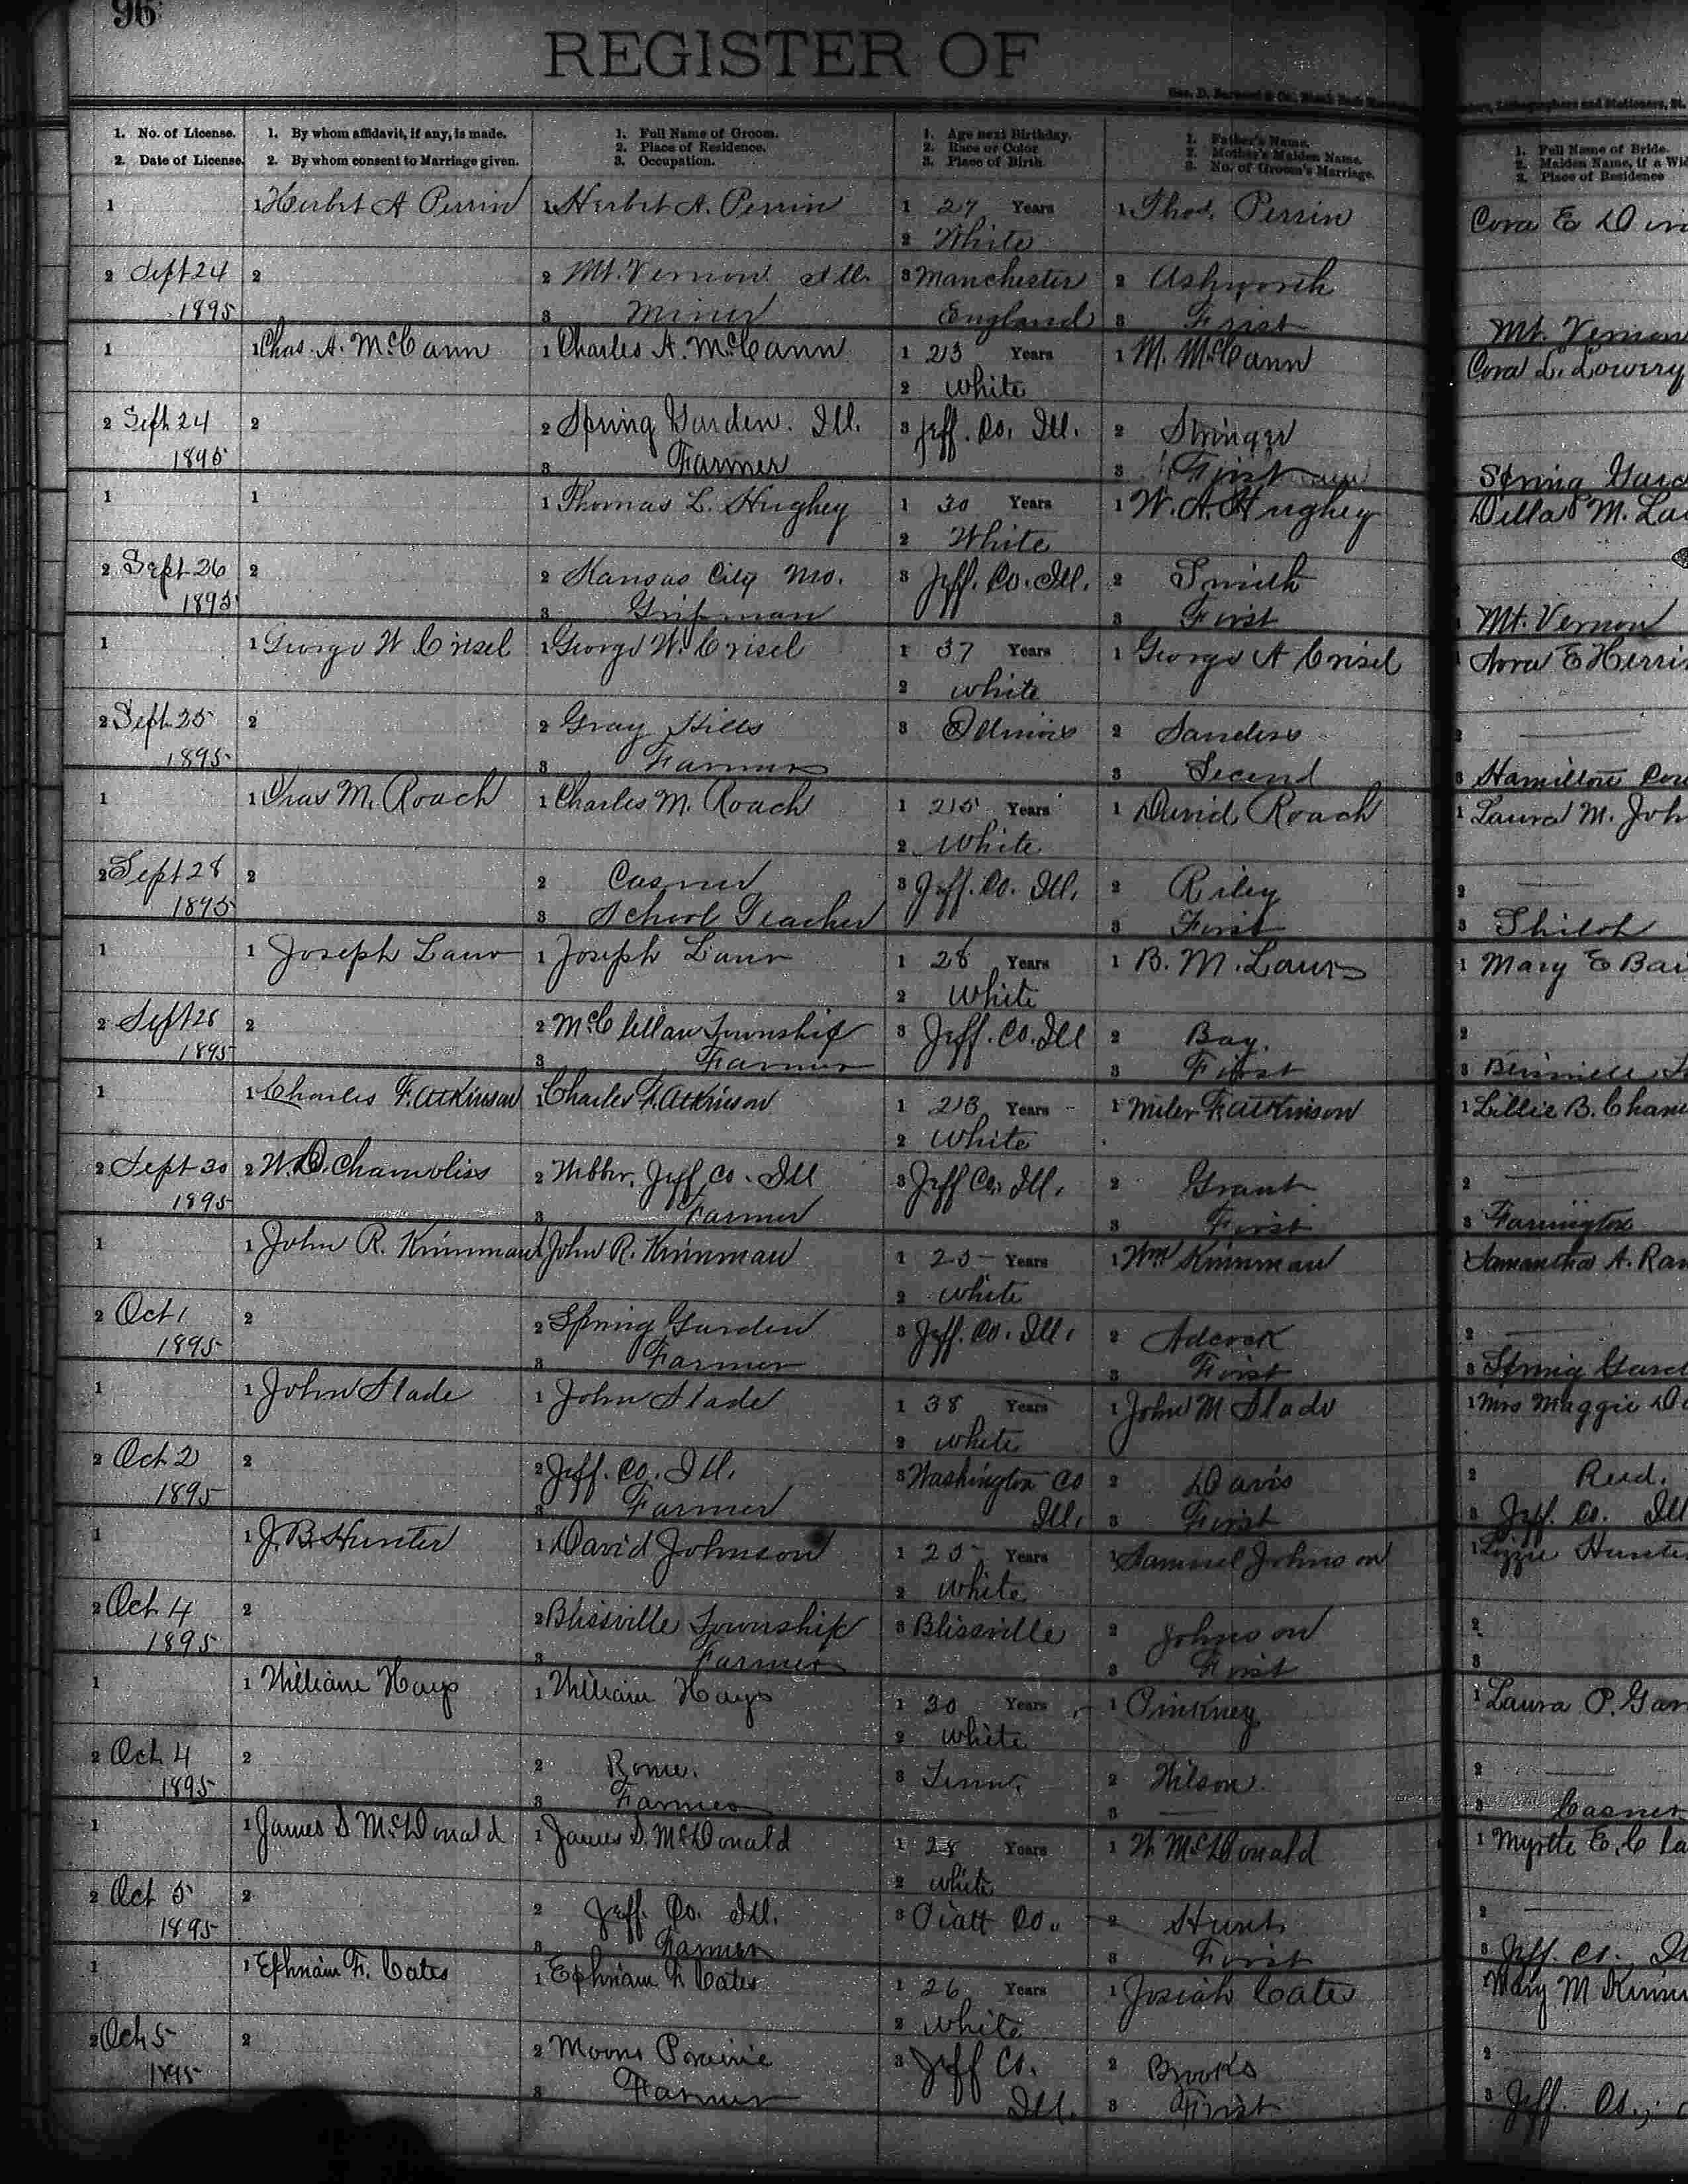 96
REGISTER OF
1. No. of License. 1. By whom affidavit, if any, is made. 1. Full Name of Groom. 1. Age next Birthday. 1. Father's Name. 1. Full Name of Bride.
2. Date of License. 2. By whom consent to Marriage given. 2. Place of Residence. 2. Race or Color 2. Mother's Maiden Name. 2. Maiden Name, if a Wi
3. Occupation. 3. Place of Birth. 3. No. of Groom's Marriage. 3. Place of Residence
1 1 Herbert A Perrin 1 Herbert A. Perrin 1 27 Years 1 Thos. Perrin Cora E
2 White
2 Sept 24 2 2 Mt. Vernon Ill. 3 Manchester 2 Ashworth
1895 3 Miner England 3 First Mt. Vernon
1 1 Chas. A. McCann 1 Charles A. McCann 1 23 Years 1 M. McCann Cora L. Lowery
2 White
2 Sept 24 2 2 Spring Garden. Ill. 3 Jeff. Co. Ill. 2 Stringer
1895 3 Farmer 3 First Spring Gard
1 1 1 Thomas L. Hughey 1 30 Years 1 W. A. Hughey Della M. La
2 White
2 Sept 26 2 2 Kansas City Mo. 3 Jeff. Co. Ill. 2 Smith
1895 3 Gripman 3 First Mt. Vernon
1 1 George W Crisel 1 George W. Crisel 1 37 Years 1 George A Crisel E Herri
2 White
2 Sept 25 2 2 Gray Hills 3 Illinois 2 Sanders
1895 3 Farmer 3 Second 3 Hamilton Cou
1 1 Chas M. Roach 1 Charles M. Roach 1 25 Years 1 David Roach 1 Laura M. Joh
2 White
2 Sept 28 2 2 Casner 3 Jeff. Co. Ill. 2 Riley 2
1895 3 School Teacher 3 First 3 Shiloh
1 1 Joseph Laur 1 Joseph Laur 1 28 Years 1 B. M. Laur 1 Mary E Bai
2 White
2 Sept 28 2 2 McClellan Township 3 Jeff. Co. Ill 2 Bay. 2
1895 3 Farmer 3 First 3
1 1 Charles F. Atkinson 1 Charles F. Atkinson 1 23 Years 1 Miles F. Atkinson 1 Lillie B. Cham
2 White
2 Sept 30 2 W. B. Chambliss 2 Webber, Jeff Co. Ill 3 Jeff Co. Ill. 2 Grant 2
1895 3 Farmer 3 First 3 Farrington
1 1 John R. Kinnman 1 John R. Kinnman 1 25 Years 1 Wm Kinnman Samantha A. Ran
2 White
2 Oct 1 2 2 Spring Garden 3 Jeff. Co. Ill. 2 Adcock 2
1895 3 Farmer 3 First 3 Spring Gard
1 1 John Slade 1 John Slade 1 38 Years 1 John M Slade 1 Mrs Maggie
2 White
2 Oct 2 2 2 Jeff. Co. Ill. 3 Washington Co 2 Davis 2 Reid.
1895 3 Farmer Ill. 3 First 3 Jeff. Co. Ill
1 1 J. B. Hunter 1 David Johnson 1 25 Years 1 Samuel Johnson 1 Lizzie Hunte
2 White
2 Oct 4 2 2 Blissville Township 3 Blissville 2 Johnson 2
1895 3 Farmer 3 First 3
1 1 William Hays 1 William Hays 1 30 Years 1 Pinkney 1 Laura P. Gar
2 White
2 Oct 4 2 2 Rome. 3 Tenn. 2 Wilson. 2
1895 3 Farmer 3 3 Casner
1 1 James D McDonald 1 James D. McDonald 1 28 Years 1 W McDonald 1 Myrtle E. Cla
2 White
2 Oct 5 2 2 Jeff. Co. Ill. 3 Piatt Co. 2 Hunt 2
1895 3 Farmer 3 First 3 Jeff. Co. Il
1 1 Ephriam F. Cates 1 Ephriam F. Cates 1 26 Years 1 Josiah Cates 1 Mary M Kinn
2 White
2 Oct 5 2 2 Moons Prairie 3 Jeff Co. 2 Brooks 2
1895 3 Farmer Ill. 3 First 3 Jeff. Co.,